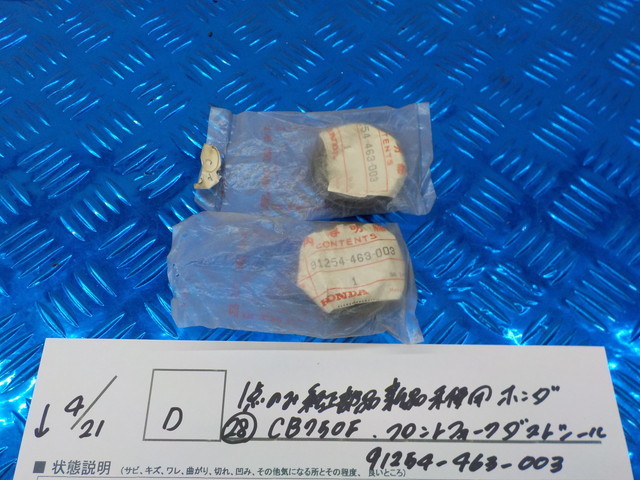 54-463-003
CONTENTS
91254-463-003
1
HONDA
↓ 4/21
D
1点のみ 純正部品 新品未使用 ホンダ
㉘ CB750F. フロントフォークダストシール
91254-463-003
■ 状態説明 (サビ、キズ、ワレ、曲がり、切れ、凹み、その他気になる所とその程度、良いところ)